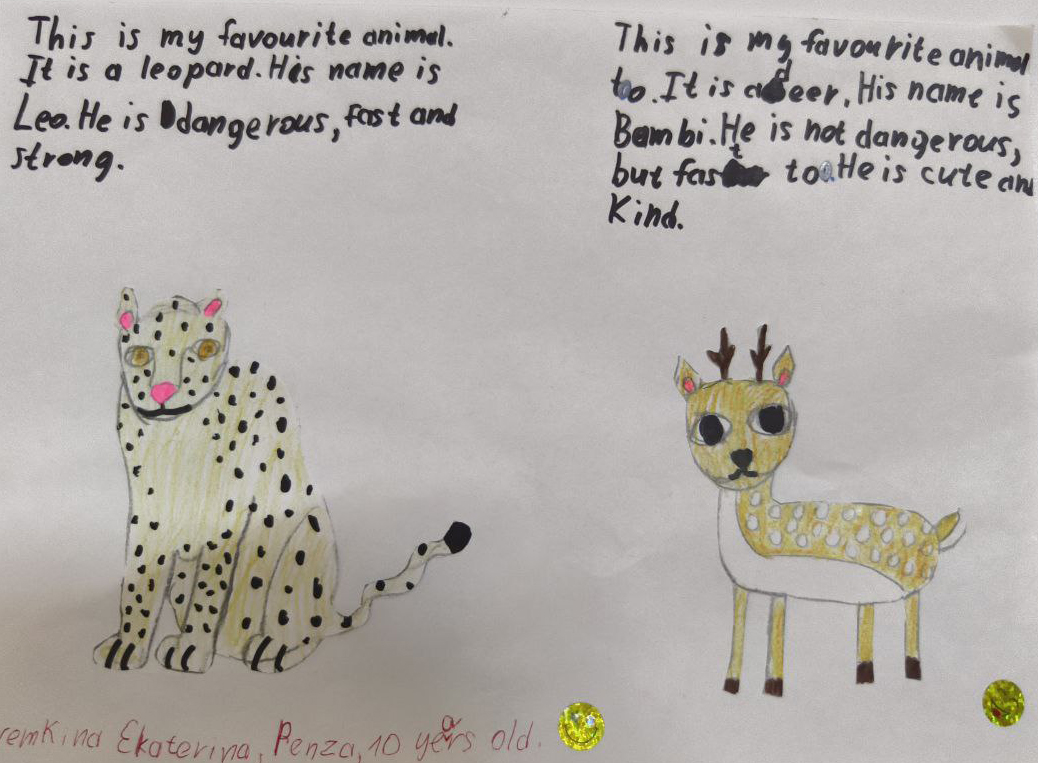 This is my favourite animal.
It is a leopard. His name is
Leo. He is dangerous, fast and
strong.
This is my favourite animal
to. It is a deer. His name is
Bambi. He is not dangerous,
but fast to. He is cute and
Kind.
Ekaterina, Penza, 10 years old.